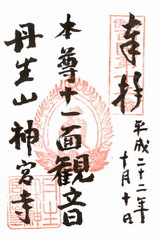 奉拝
平成二十二年
十月十日
本尊十一面観音
丹生山
神宮寺